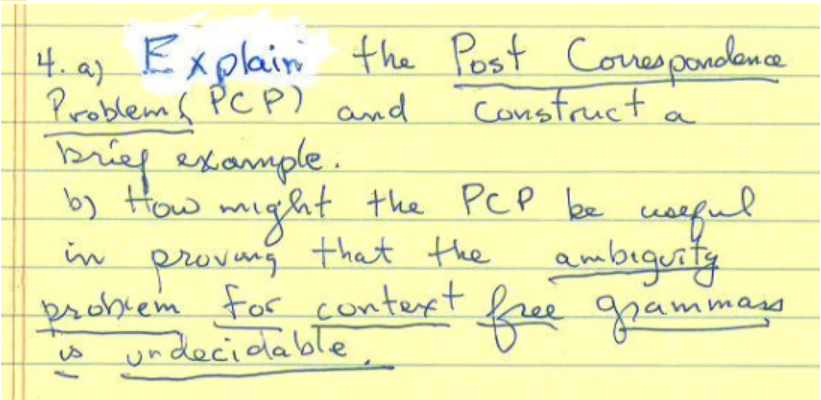 4. a) Explain the Post Correspondence
Problem (PCP) and construct a
brief example.
b) How might the PCP be useful
in proving that the ambiguity
problem for context free grammars
is undecidable.